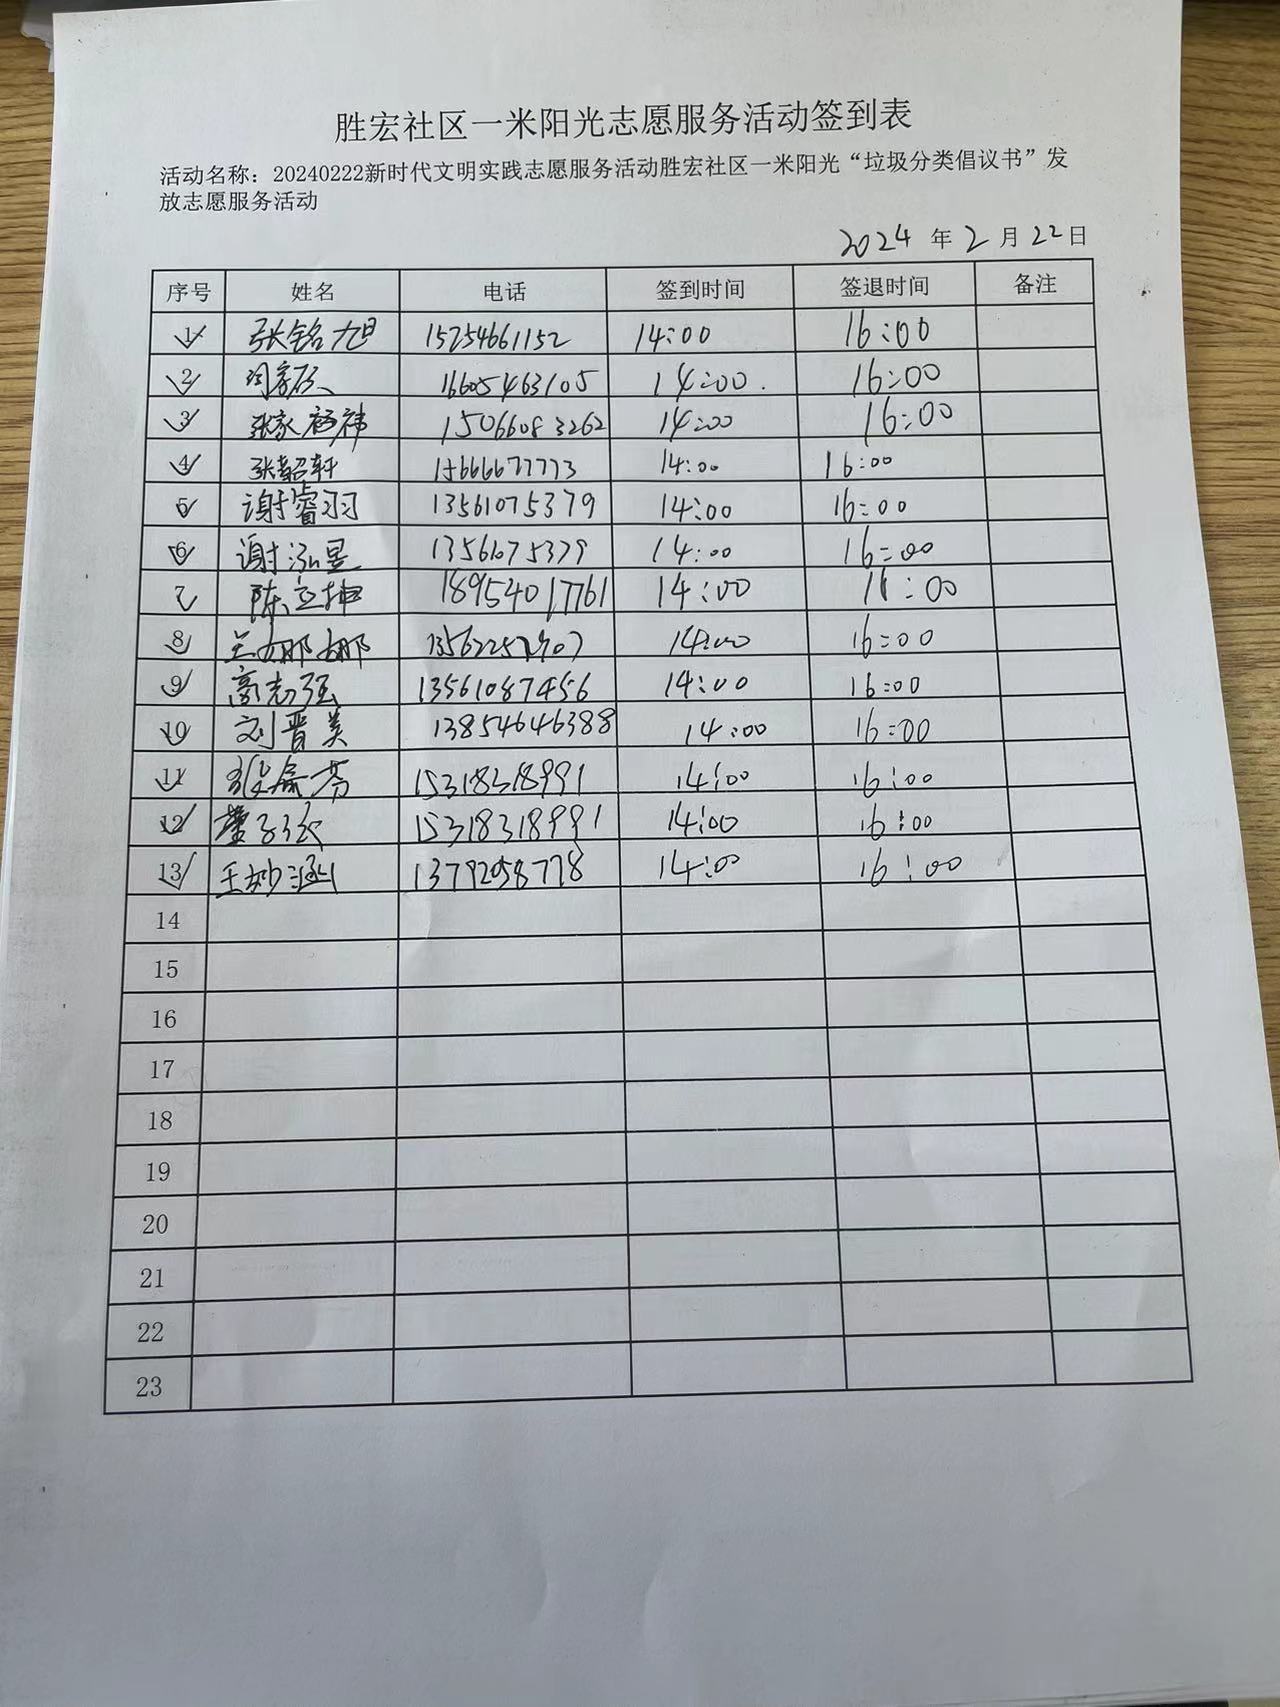 胜宏社区一米阳光志愿服务活动签到表
活动名称：20240222新时代文明实践志愿服务活动胜宏社区一米阳光“垃圾分类倡议书”发
放志愿服务活动
2024 年 2 月 22 日
序号 姓名 电话 签到时间 签退时间 备注
1 张铭旭 15254661152 14:00 16:00
2 16605463105 14:00 16:00
3 张家 祎 15066083262 14:00 16:00
4 张韶轩 15666677773 14:00 16:00
5 谢睿羽 13561075379 14:00 16:00
6 谢泓昱 13561075379 14:00 16:00
7 陈立坤 18954017761 14:00 16:00
8 兰娜娜 14:00 16:00
9 高志强 13561087456 14:00 16:00
10 刘晋美 13854646388 14:00 16:00
11 15318318991 14:00 16:00
12 15318318991 14:00 16:00
13 王妙涵 14:00 16:00
14
15
16
17
18
19
20
21
22
23